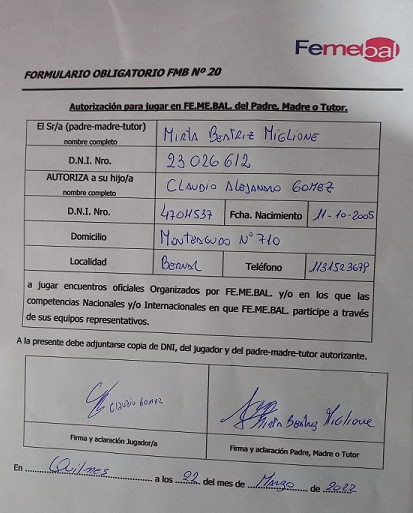 Femebal
FORMULARIO OBLIGATORIO FMB Nº 20
Autorización para jugar en FE.ME.BAL. del Padre, Madre o Tutor.
El Sr/a (padre-madre-tutor)
nombre completo
MIRTA BEATRIZ MIGLIONE
D.N.I. Nro.
23026612
AUTORIZA a su hijo/a
nombre completo
CLAUDIO ALEJANDRO GOMEZ
D.N.I. Nro.
47011537
Fcha. Nacimiento
11-10-2005
Domicilio
MONTEAGUDO Nº 710
Localidad
BERNAL
Teléfono
1131523679
a jugar encuentros oficiales Organizados por FE.ME.BAL. y/o en los que las
competencias Nacionales y/o Internacionales en que FE.ME.BAL. participe a través
de sus equipos representativos.
A la presente debe adjuntarse copia de DNI, del jugador y del padre-madre-tutor autorizante.
CLAUDIO GOMEZ
Mirta Beatriz Miglione
Firma y aclaración Jugador/a
Firma y aclaración Padre, Madre o Tutor
En Quilmes a los 22 del mes de Marzo de 2022